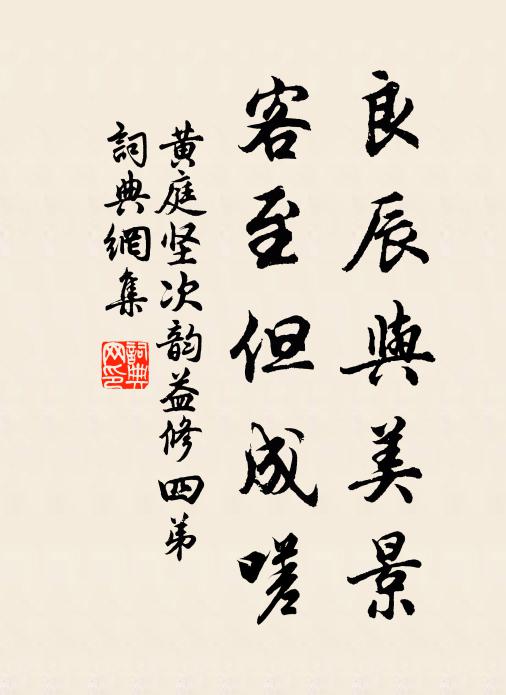 良辰與美景
客至但成嗟
黄庭坚次韵益修四弟
詞典網集
詞典网印